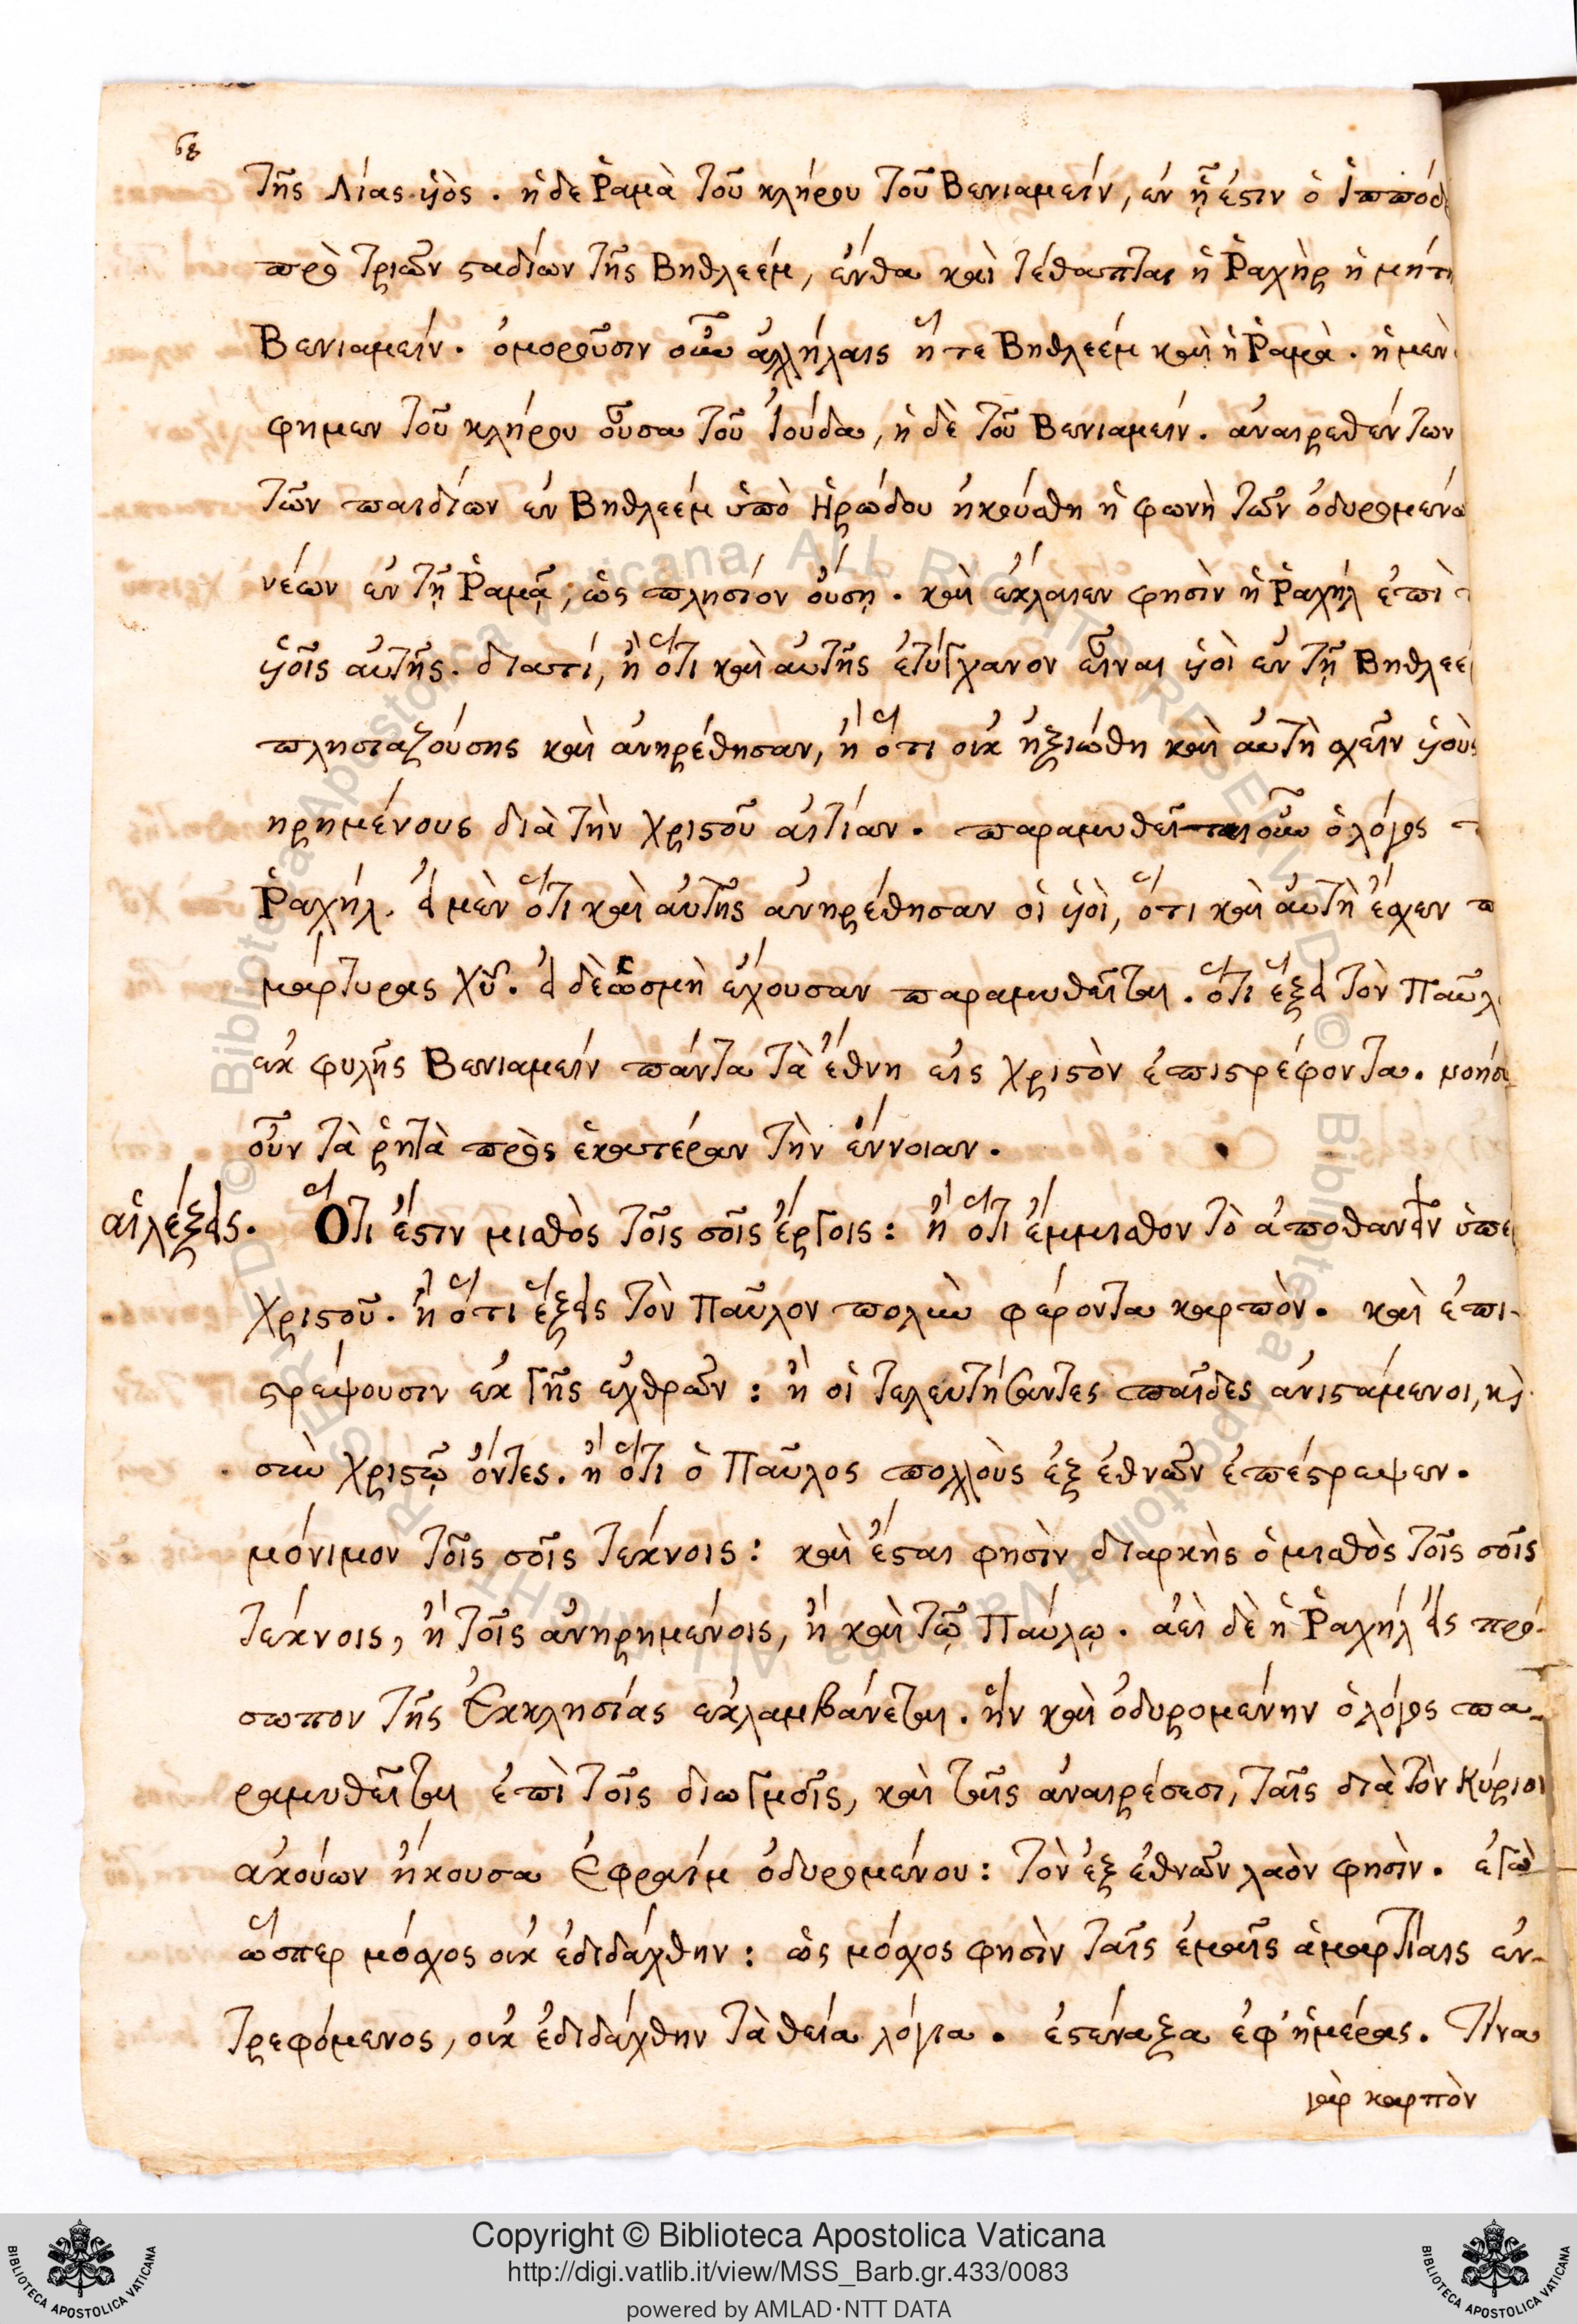 68
τῆς Λίας ὑὸς. ἡ δε Ῥαμὰ τοῦ κλήρου τοῦ Βενιαμείν, ἐν ᾗ ἐστιν ὁ ἱππόδ
πρὸ τριῶν σταδίων τῆς Βηθλεέμ, ἔνθα καὶ τέθαπται ἡ Ῥαχὴρ ἡ μήτη
Βενιαμείν. ὁμοροῦσιν οὖν ἀλλήλαις ἥ τε Βηθλεέμ καὶ ἡ Ῥαμὰ. ἡ μὲν
φημεν τοῦ κλήρου οὖσα τοῦ Ἰούδα, ἡ δὲ τοῦ Βενιαμείν. ἀναιρεθέντων
τῶν παιδίων ἐν Βηθλεέμ ὑπὸ Ἡρώδου ἠκούσθη ἡ φωνὴ τῶν ὀδυρομένω
νέων ἐν τῇ Ῥαμᾷ, ὡς πλησίον οὔσῃ. καὶ ἔκλαιεν φησὶν ἡ Ῥαχήλ ἐπὶ τ
ὑοῖς αὐτῆς. διατί, ἢ ὅτι καὶ αὐτῆς ἐτύγχανον εἶναι ὑοὶ ἐν τῇ Βηθλεε
πλησιαζούσης καὶ ἀνηρέθησαν, ἢ ὅτι οὐκ ἠξιώθη καὶ αὐτὴ σχεῖν ὑοὺς
ηρημένους διὰ τὴν Χριστοῦ αἰτίαν. παραμυθεῖται οὖν ὁ λόγος τ
Ῥαχήλ. εἰ μὲν ὅτι καὶ αὐτῆς ἀνηρέθησαν οἱ ὑοὶ, ὅτι καὶ αὐτὴ ἔσχεν
μάρτυρας Χῦ. εἰ δὲ ὡς μὴ ἔχουσαν παραμυθεῖται. ὅτι ἕξει τὸν Παῦλ
ἐκ φυλῆς Βενιαμείν πάντα τὰ ἔθνη εἰς Χριστὸν ἐπιστρέφοντα. νοήσ
οὖν τὰ ῥητὰ πρὸς ἑκατέραν τὴν ἔννοιαν.
αἱ λέξεις. Ὅτι ἔστιν μισθὸς τοῖς σοῖς ἔργοις: ἢ ὅτι ἔμμισθον τὸ ἀποθανεῖν ὑπε
Χριστοῦ. ἢ ὅτι ἕξεις τὸν Παῦλον πολὺν φέροντα καρπὸν. καὶ ἐπι-
στρέψουσιν ἐκ γῆς ἐχθρῶν: ἢ οἱ τελευτήσαντες παῖδες ἀνιστάμενοι, κὶ
σὺν Χριστῷ ὄντες. ἢ ὅτι ὁ Παῦλος πολλοὺς ἐξ ἐθνῶν ἐπέστρεψεν.
μόνιμον τοῖς σοῖς τέκνοις: καὶ ἔσται φησὶν διαρκὴς ὁ μισθὸς τοῖς σοῖς
τέκνοις, ἢ τοῖς ἀνηρημένοις, ἢ καὶ τῷ Παύλῳ. ἀεὶ δὲ ἡ Ῥαχήλ εἰς πρό-
σωπον τῆς Ἐκκλησίας ἐκλαμβάνεται. ἣν καὶ ὀδυρομένην ὁ λόγος πα-
ραμυθεῖται ἐπὶ τοῖς διωγμοῖς, καὶ ταῖς ἀναιρέσεσι, ταῖς διὰ τὸν Κύριον
ἀκούων ἤκουσα Ἐφραίμ ὀδυρομένου: τὸν ἐξ ἐθνῶν λαὸν φησὶν. ἐγὼ
ὥσπερ μόσχος οὐκ ἐδιδάχθην: ὡς μόσχος φησὶν ταῖς ἐμαῖς ἁμαρτίαις ἐν-
τρεφόμενος, οὐκ ἐδιδάχθην τὰ θεία λόγια. ἐστέναξα ἐφ' ἡμέρας. τίνα
γὰρ καρπὸν
Copyright © Biblioteca Apostolica Vaticana
http://digi.vatlib.it/view/MSS_Barb.gr.433/0083
powered by AMLAD·NTT DATA
BIBLIOTECA APOSTOLICA VATICANA
BIBLIOTECA APOSTOLICA VATICANA